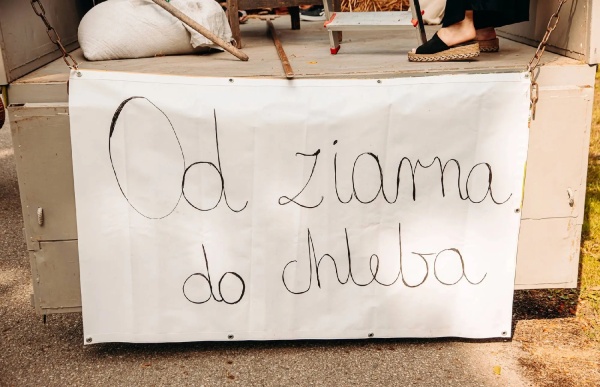 Od ziarna
do chleba